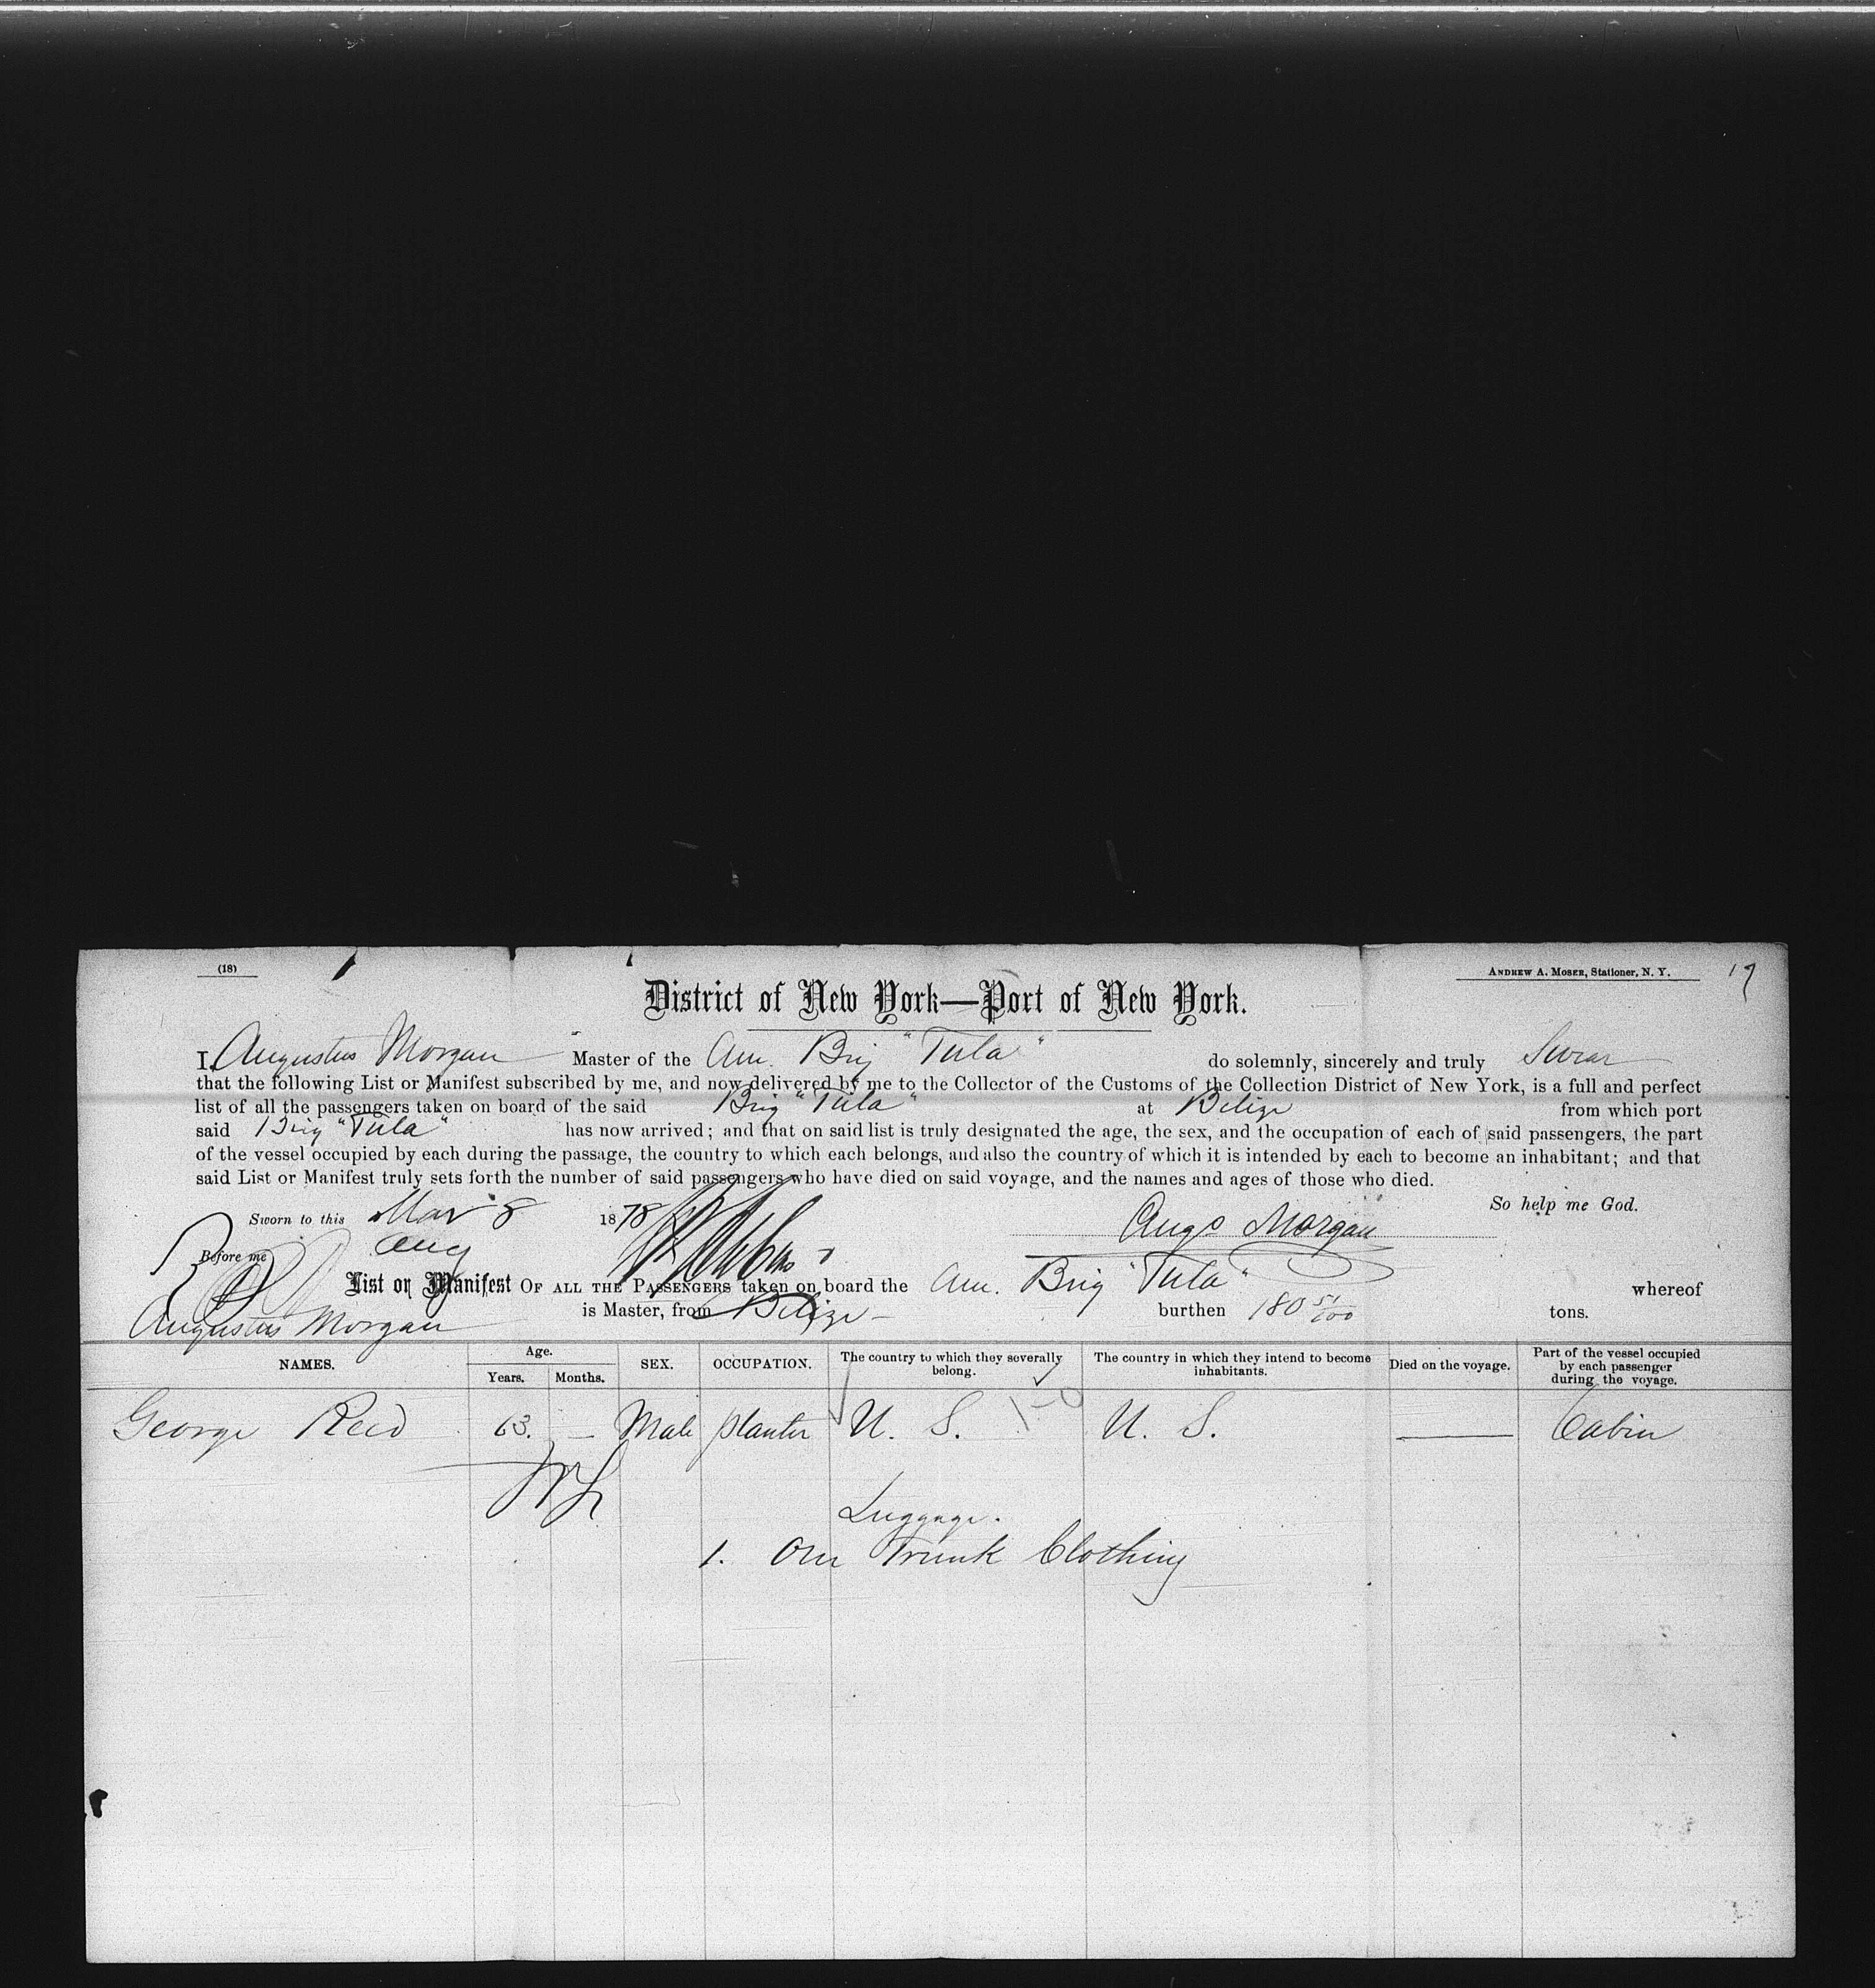 (18)
ANDREW A. MOSER, Stationer, N. Y.
17
District of New York—Port of New York.
I, Augustus Morgan Master of the Am. Brig "Tula" do solemnly, sincerely and truly Swear
that the following List or Manifest subscribed by me, and now delivered by me to the Collector of the Customs of the Collection District of New York, is a full and perfect
list of all the passengers taken on board of the said Brig "Tula" at Belize from which port
said Brig "Tula" has now arrived; and that on said list is truly designated the age, the sex, and the occupation of each of said passengers, the part
of the vessel occupied by each during the passage, the country to which each belongs, and also the country of which it is intended by each to become an inhabitant; and that
said List or Manifest truly sets forth the number of said passengers who have died on said voyage, and the names and ages of those who died.
So help me God.
Sworn to this Mar 8 1878
Augs Morgan
Before me
List or Manifest OF ALL THE PASSENGERS taken on board the Am. Brig "Tula" whereof
Augustus Morgan is Master, from Belize burthen 180 51/100 tons.
NAMES. Age. Years. Months. SEX. OCCUPATION. The country to which they severally belong. The country in which they intend to become inhabitants. Died on the voyage. Part of the vessel occupied by each passenger during the voyage.
George Reid 63. — Male planter U. S. U. S. — Cabin
Luggage.
1. One Trunk Clothing